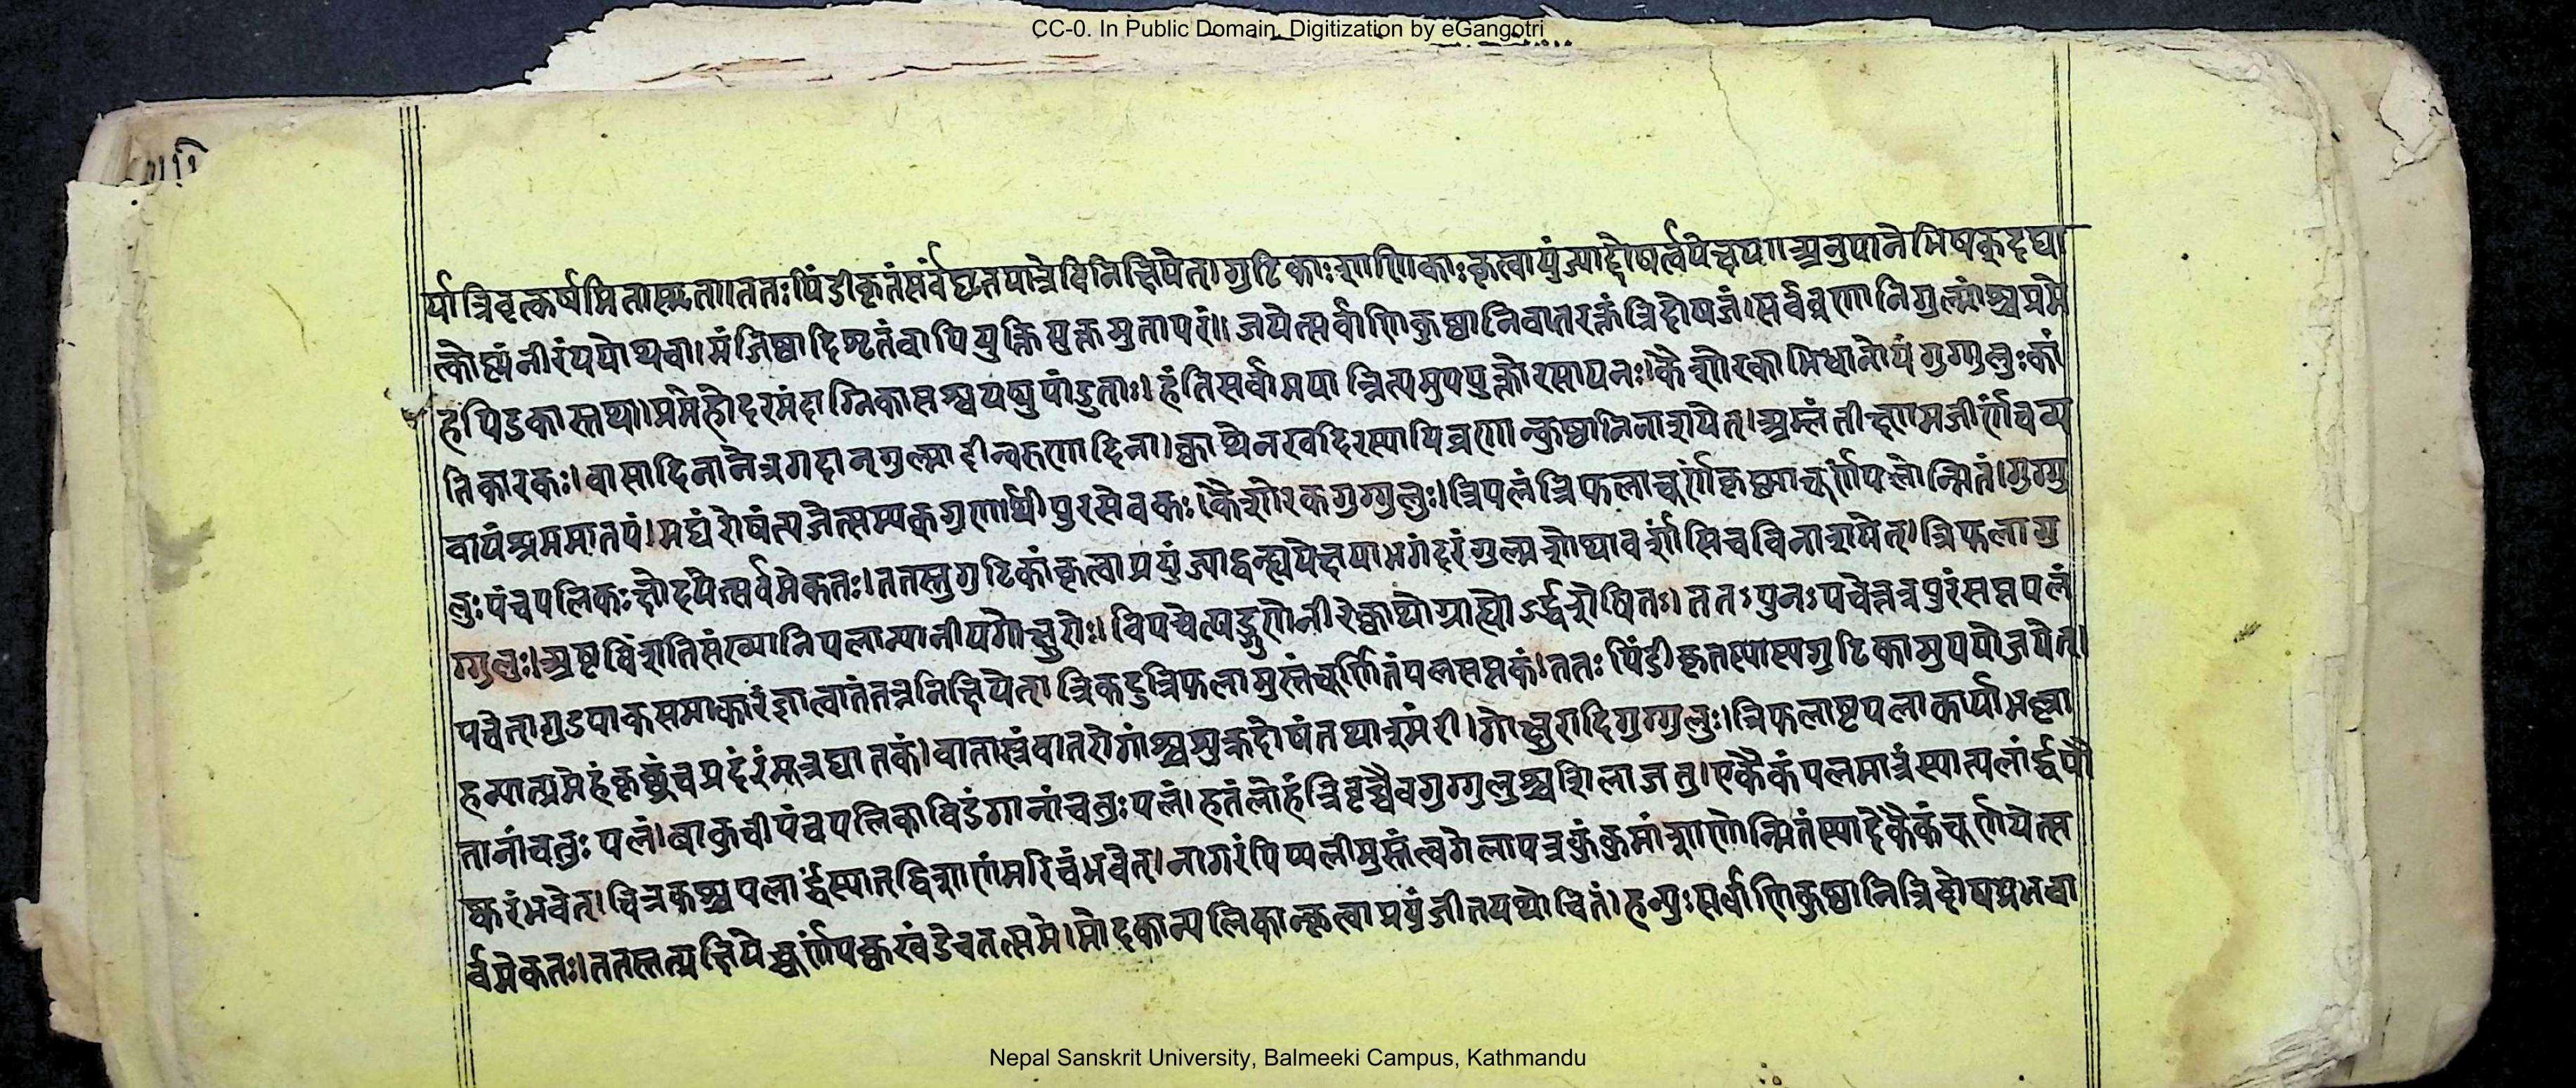 CC-0. In Public Domain. Digitization by eGangotri
र्यात्रिवृत्कर्षमितास्मृता।ततःपिंडीकृतंसर्वंघृतपात्रेविनिक्षिपेत्।गुटिकाःशाणिकाःकृत्वायुंज्याद्दोषर्त्वपेक्षया॥अनुपानेभिषक्दद्या
त्कोष्णंनीरंपयोथवा।मंजिष्ठादिशृतंवापियुक्तियुक्तमुतापरं॥जयेत्सर्वाणिकुष्ठानिवातरक्तंत्रिदोषजं।सर्वव्रणानिगुल्मांश्चप्रमे
हपिडकास्तथा।प्रमेहोदरमंदाग्निकासश्वयथुपांडुताः।हंतिसर्वामयान्नित्यमुपयुक्तोरसायनः।कैशोरकाभिधानोयंगुग्गुलुःकां
तिकारकः।वासादिनानेत्रगदान्गुल्मादीन्वरुणादिना।क्वाथेनखदिरस्यापिव्रणान्कुष्ठानिनाशयेत्।अम्लंतीक्ष्णमजीर्णंचव्य
वायंश्रममातपं।मद्यंरोषंत्यजेत्सम्यक्गुणार्थीपुरसेवकः।कैशोरकगुग्गुलुः।त्रिपलंत्रिफलाचूर्णंकृष्णाचूर्णंपलोन्मितं।गुग्गु
लुःपंचपलिकःक्षोदयेत्सर्वमेकतः।ततस्तुगुटिकांकृत्वाप्रयुंज्याद्वन्ह्यपेक्षया।भगंदरंगुल्मशोथावर्शांसिचविनाशयेत्।त्रिफलागु
ग्गुलुः।अष्टाविंशतिसंख्यानिपलान्यानीयगोक्षुरोः।विपचेत्षड्गुणेनीरेक्वाथोग्राह्योऽर्द्धशेषितः।ततःपुनःपचेत्तत्रपुरंसप्तपलं
पचेत्।गुडपाकसमाकारंज्ञात्वातंतत्रनिक्षिपेत्।त्रिकटुत्रिफलामुस्तंचूर्णितंपलसप्तकं।ततःपिंडीकृतस्यास्यगुटिकामुपयोजयेत्।
हन्यात्प्रमेहंकृच्छ्रंचप्रदरंमूत्रघातकं।वातास्रंवातरोगांश्चशुक्रदोषंतथाश्मरी।गोक्षुरादिगुग्गुलुः।त्रिफलाष्टपलाकार्याभल्ला
तानांचतुःपलं।बाकुचीपंचपलिकाविडंगानांचतुःपलं।हतंलोहंत्रिवृच्चैवगुग्गुलुश्चशिलाजतु।एकैकंपलमात्रंस्यात्पलार्द्धंपौ
ष्करंभवेत्।चित्रकश्चपलार्द्धंस्यात्द्विशाणंमरिचंभवेत्।नागरंपिप्पलीमुस्तंत्वगेलापत्रकुंकुमांशाणोन्मितंस्यादेकैकंचूर्णयेत्स
र्वमेकतः।ततस्तत्प्रक्षिपेच्चूर्णंपक्वखंडेचतत्समे।मोदकान्पलिकान्कृत्वाप्रयुंजीतयथोचितं।हन्युःसर्वाणिकुष्ठानित्रिदोषप्रभवा
Nepal Sanskrit University, Balmeeki Campus, Kathmandu